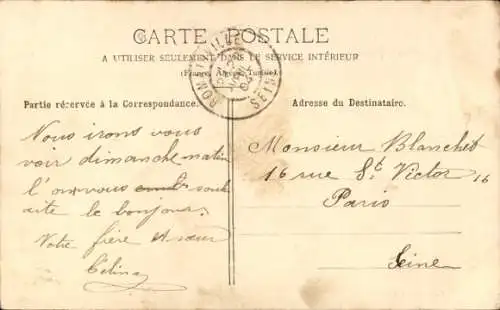 CARTE POSTALE
A UTILISER SEULEMENT DANS LE SERVICE INTÉRIEUR
(France, Algérie, Tunisie).
ROMAINVILLE
SEINE
Partie réservée à la Correspondance.
Nous irons vous
voir dimanche matin
souh
aite le bonjour.
Votre frère et sœur
Célina
Adresse du Destinataire.
Monsieur Blanchet
16 rue St Victor 16
Paris
Seine